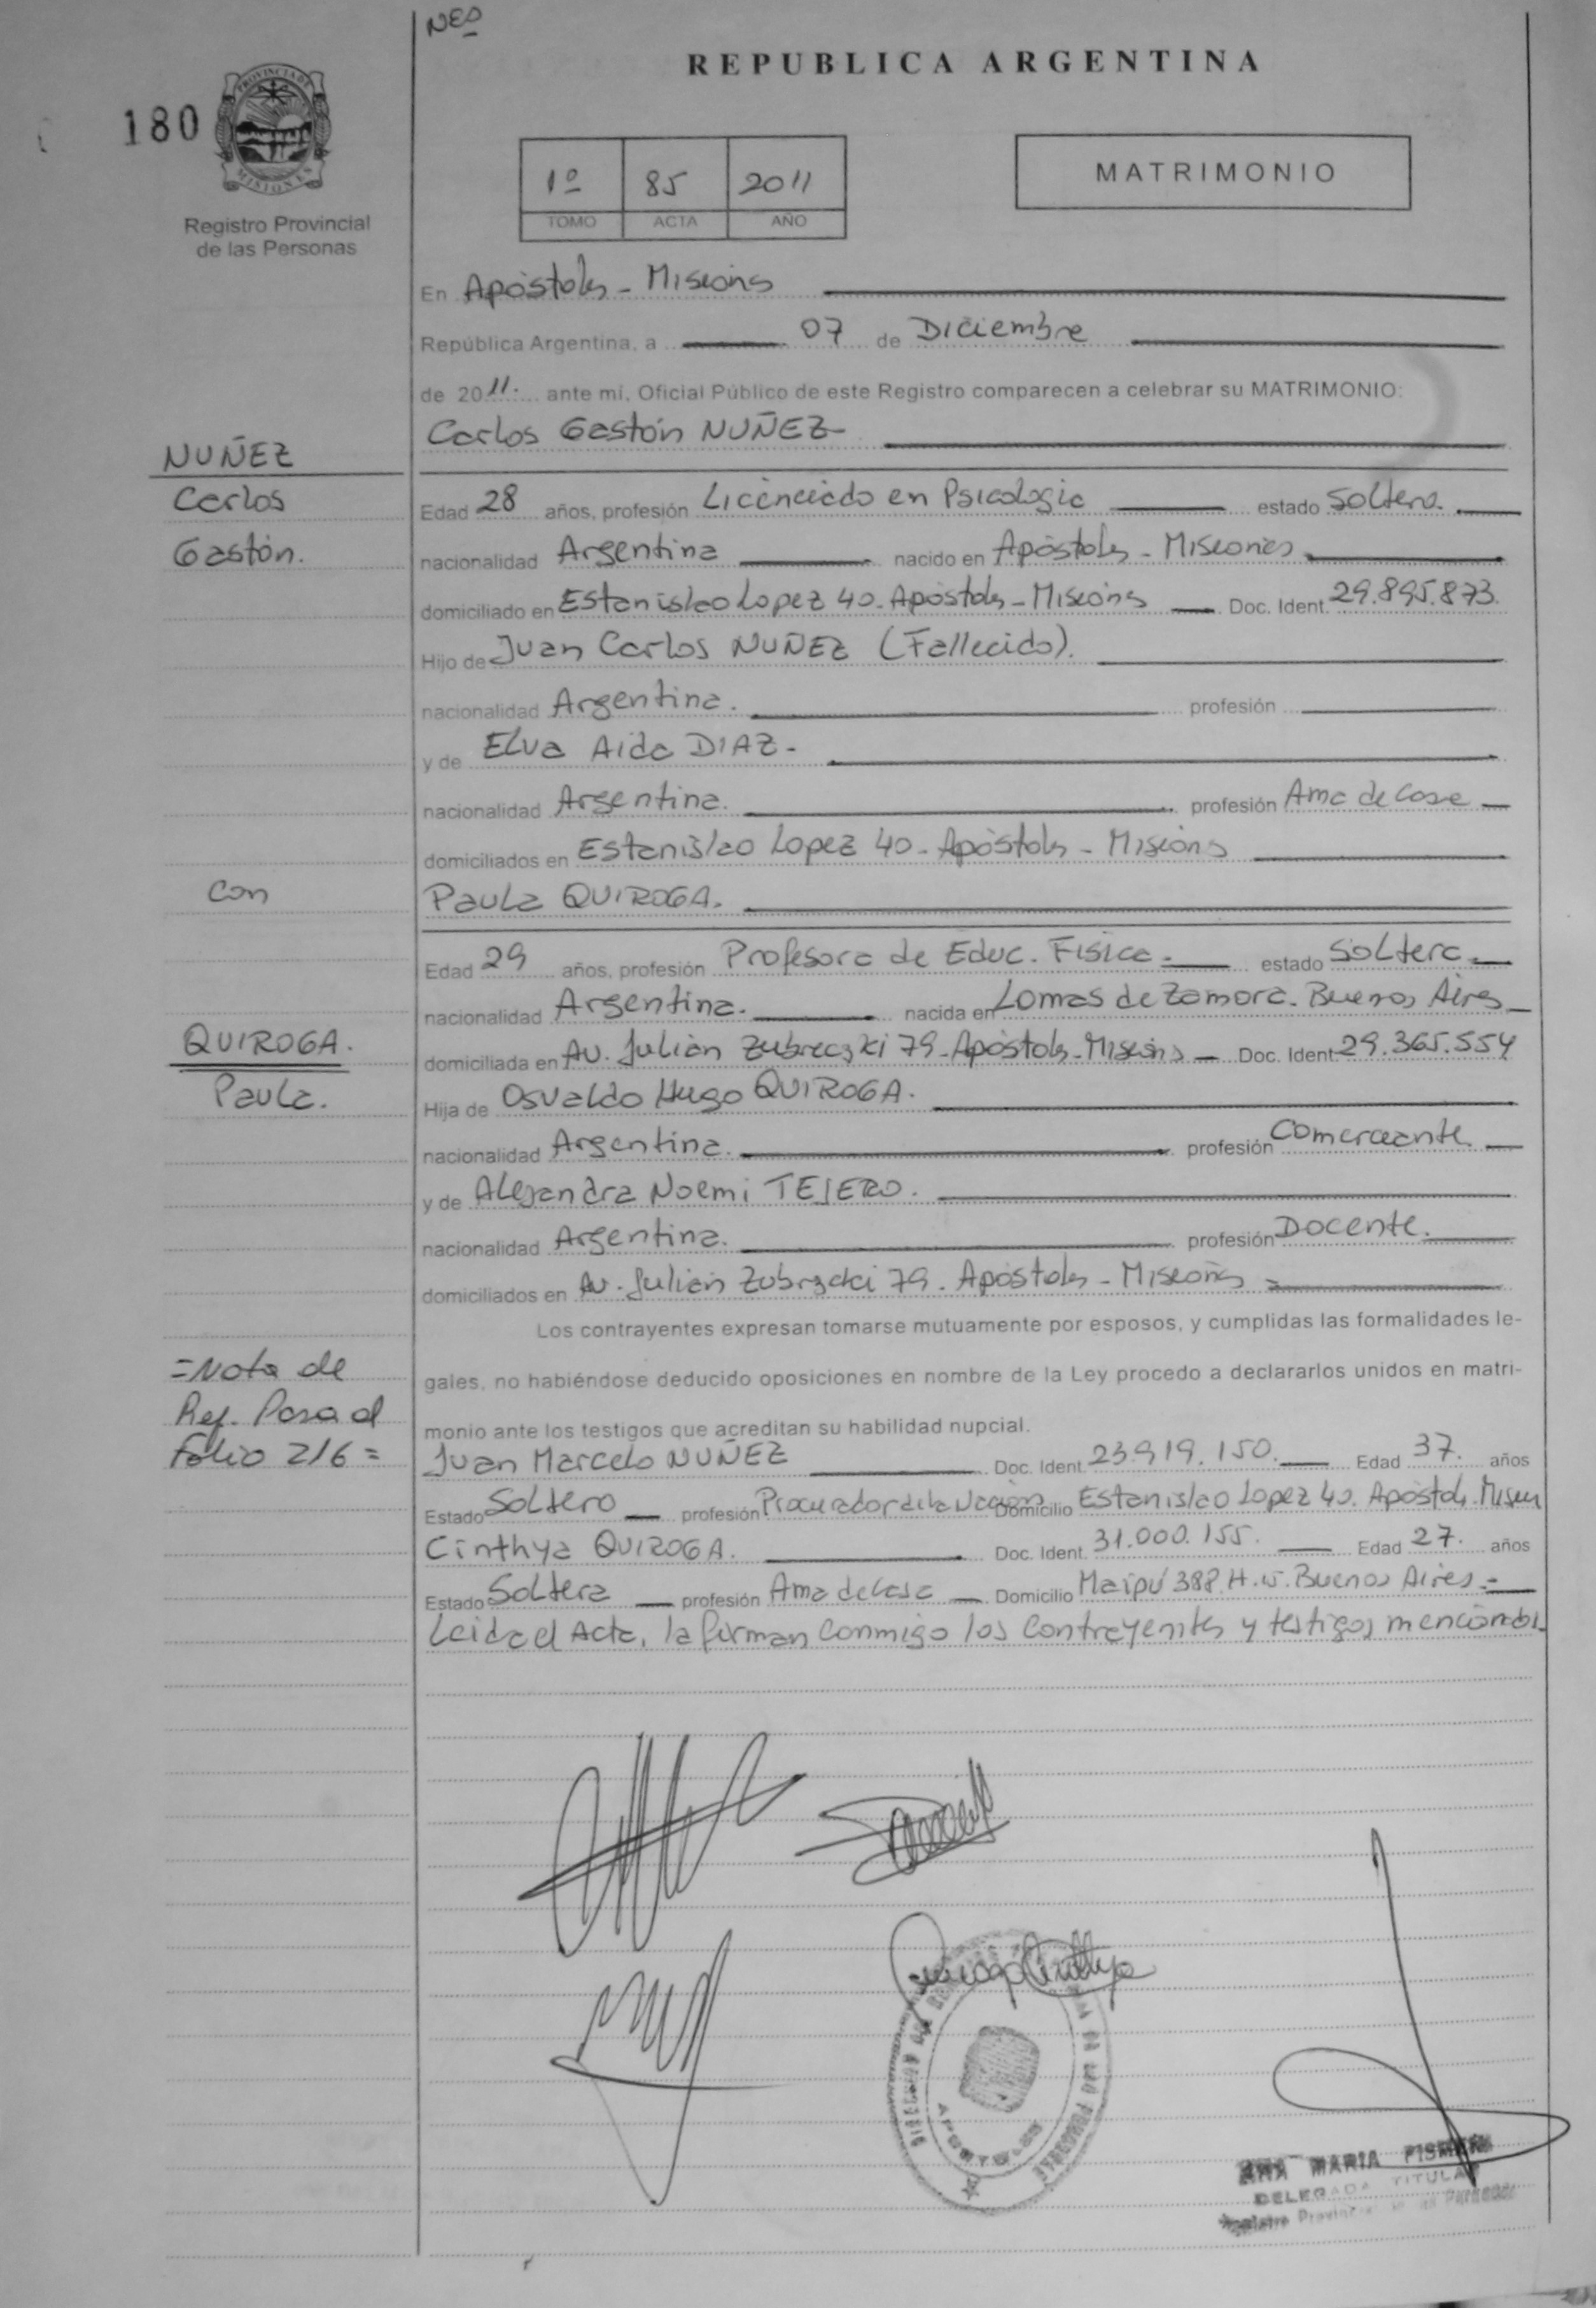 NES
REPUBLICA ARGENTINA
180
PROVINCIA DE
MISIONES
Registro Provincial
de las Personas
1º 85 2011
TOMO ACTA AÑO
MATRIMONIO
En Apóstoles - Misiones
República Argentina, a 07 de Diciembre
de 2011. ante mi, Oficial Público de este Registro comparecen a celebrar su MATRIMONIO:
Carlos Gastón NUÑEZ-
NUÑEZ
Carlos
Gastón.
Edad 28 años, profesión Licenciado en Psicologia estado Soltero.
nacionalidad Argentina nacido en Apóstoles - Misiones
domiciliado en Estanislao Lopez 40. Apóstoles - Misiones Doc. Ident. 29.895.873.
Hijo de Juan Carlos NUÑEZ (Fallecido).
nacionalidad Argentina. profesión
y de Elva Aida DIAZ-
nacionalidad Argentina. profesión Ama de Casa
domiciliados en Estanislao Lopez 40. Apóstoles - Misiones
con
Paula QUIROGA.
Edad 29 años, profesión Profesora de Educ. Fisica. estado Soltera.
nacionalidad Argentina. nacida en Lomas de Zamora. Buenos Aires
QUIROGA.
Paula.
domiciliada en Av. Julián 79. Apóstoles - Misiones Doc. Ident. 29.365.554
Hija de Osvaldo Hugo QUIROGA.
nacionalidad Argentina. profesión Comerciante
y de Alejandra Noemi TEJERO.
nacionalidad Argentina. profesión Docente.
domiciliados en Av. Julián 79. Apóstoles - Misiones
Los contrayentes expresan tomarse mutuamente por esposos, y cumplidas las formalidades le-
gales, no habiéndose deducido oposiciones en nombre de la Ley procedo a declararlos unidos en matri-
monio ante los testigos que acreditan su habilidad nupcial.
=Nota de
Ref. Pasa al
Folio 216=
Juan Marcelo NUÑEZ Doc. Ident. 23.919.150. Edad 37. años
Estado Soltero profesión Procurador de la Nación Domicilio Estanislao Lopez 40. Apóstoles.
Cinthya QUIROGA. Doc. Ident. 31.000.155. Edad 27. años
Estado Soltera profesión Ama de Casa Domicilio Maipú 388. Buenos Aires.-
Leida el Acta, la firman conmigo los contrayentes y testigos mencionados
Quiroga Cinthya
APOSTOLES
ANA MARIA
DELEGADA TITULAR
Registro Provincial de las Personas